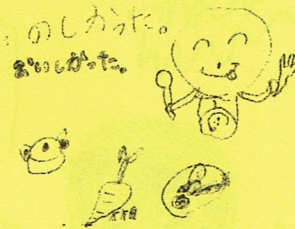 のしかった。
おいしかった。